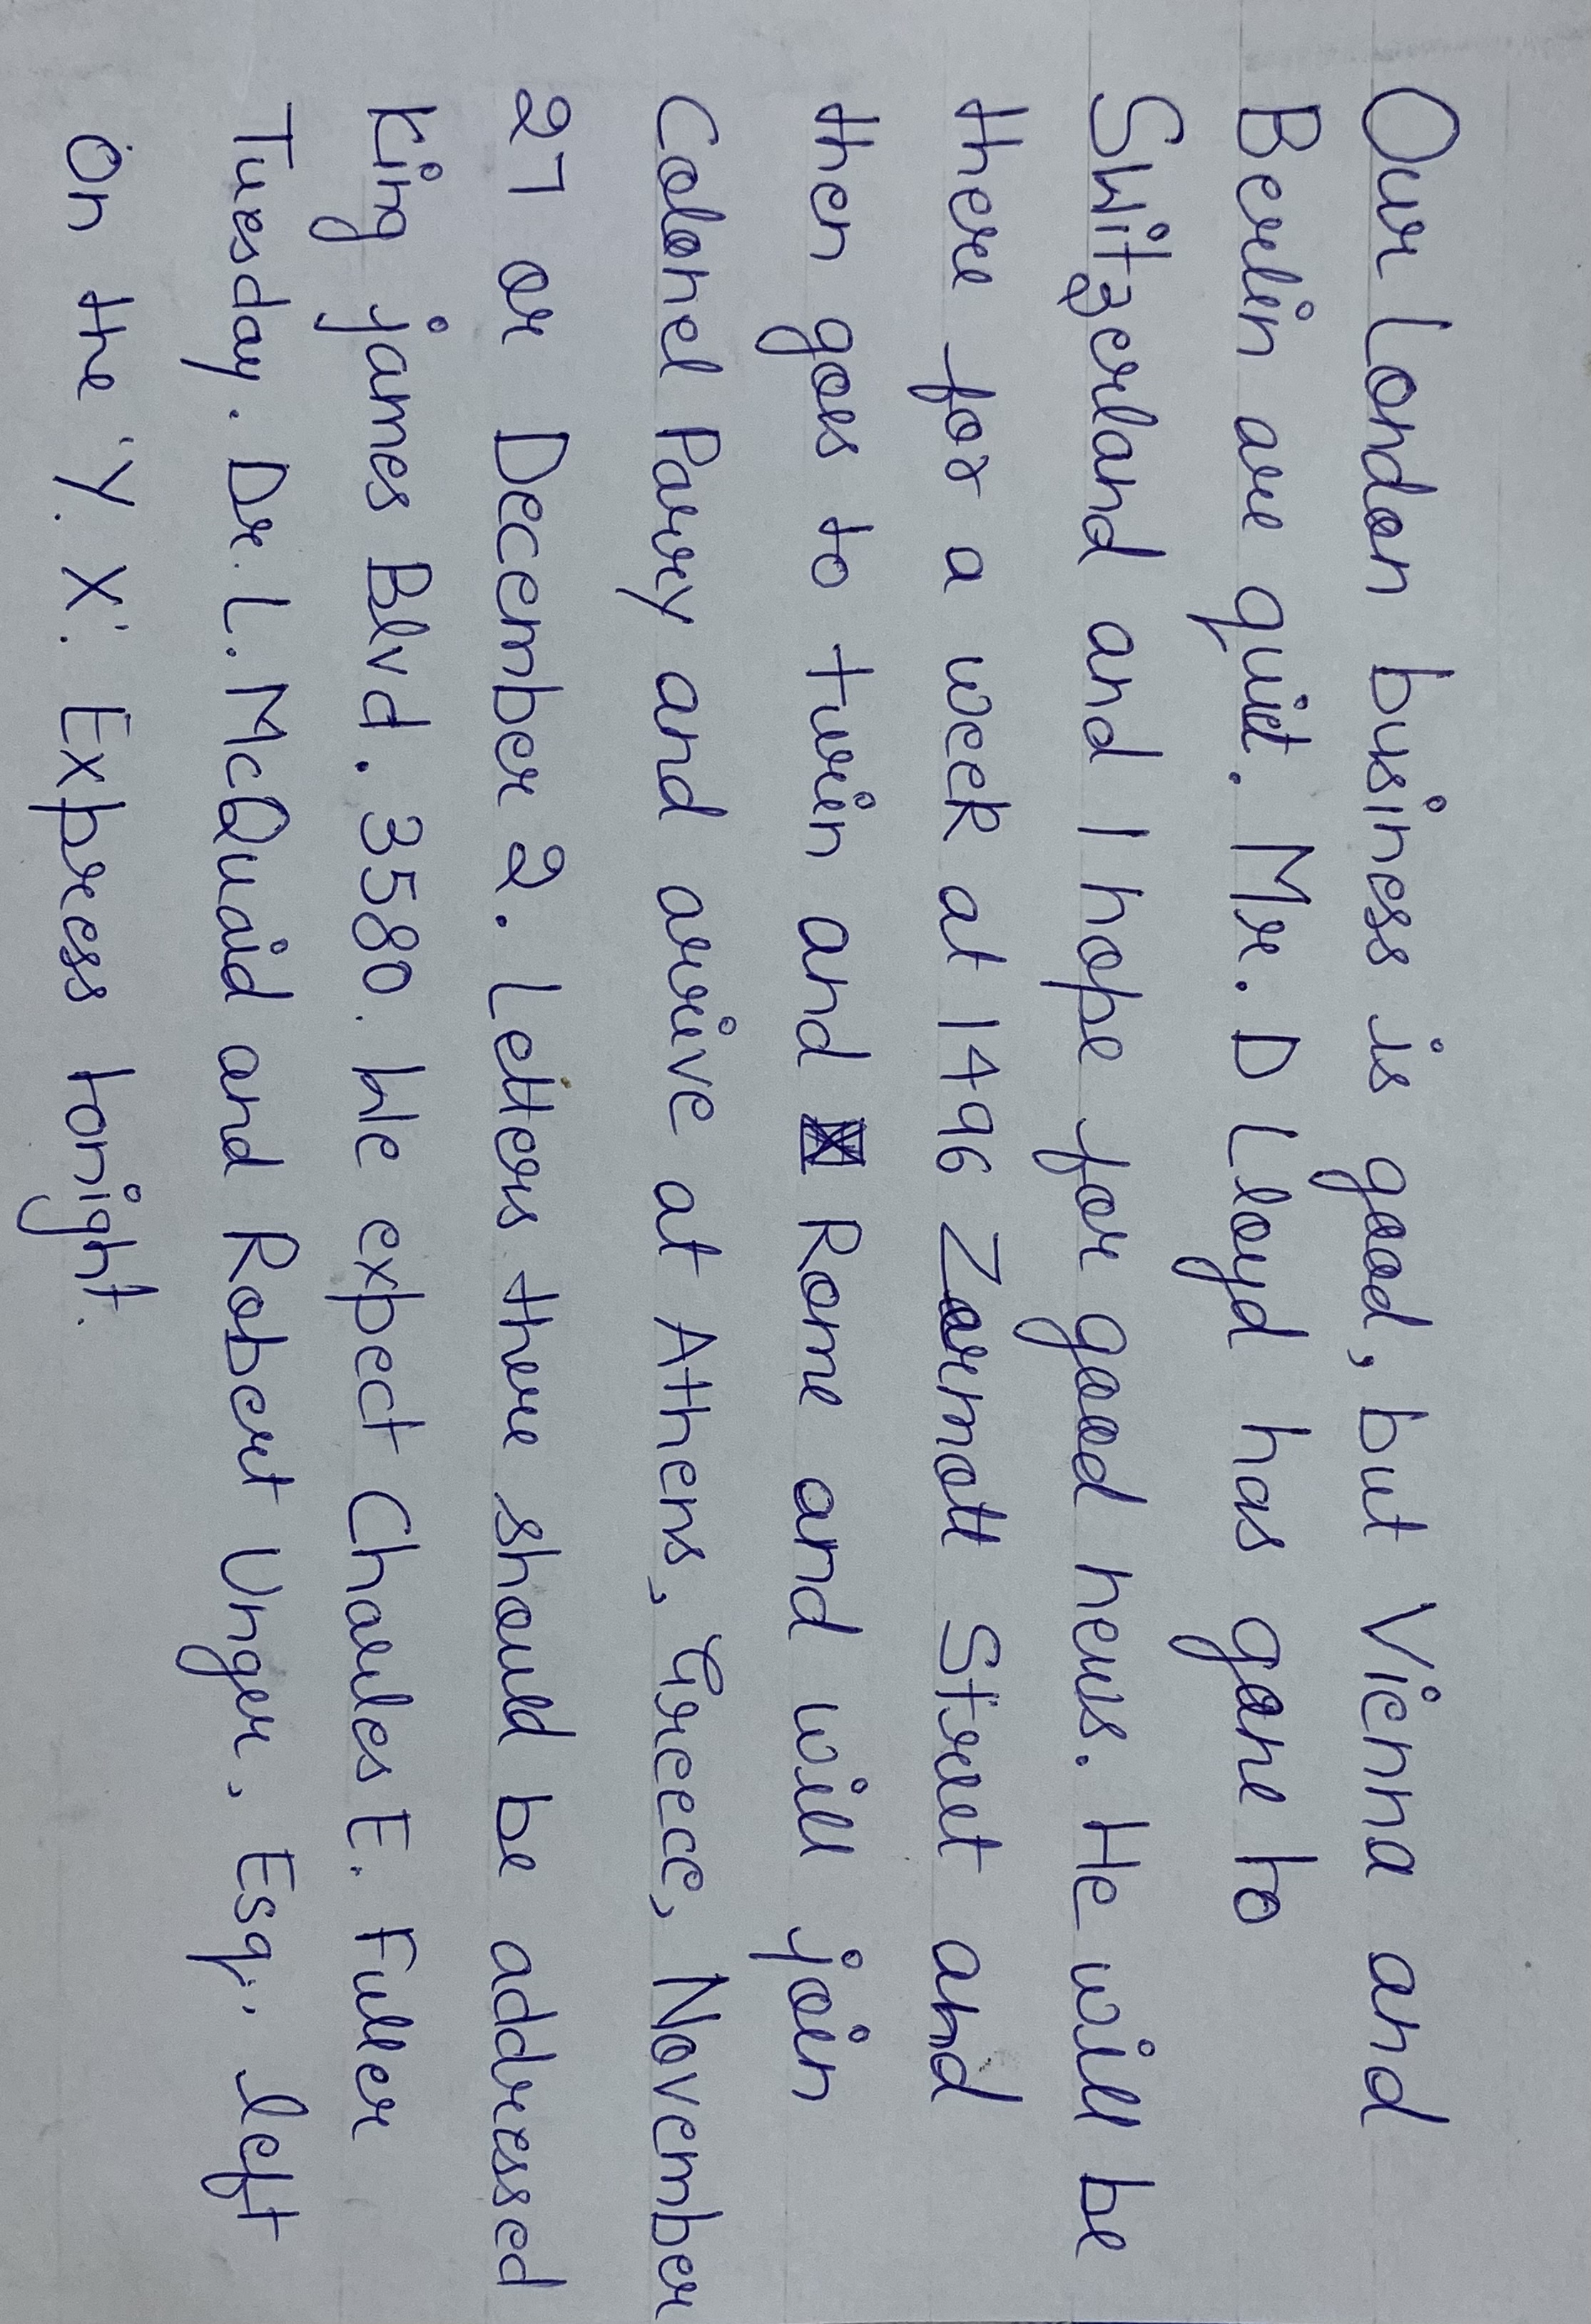 Our London business is good, but Vienna and
Berlin are quiet. Mr. D Lloyd has gone to
Switzerland and I hope for good news. He will be
there for a week at 1496 Zormott Street and
then goes to turin and Rome and will join
Colonel Parry and arrive at Athens, Greece, November
27 or December 2. Letters there should be addressed
King james Blvd. 3580. We expect Charles E. Fuller
Tuesday. Dr. L. McQuaid and Robert Unger, Esq., left
on the 'Y. X'. Express tonight.